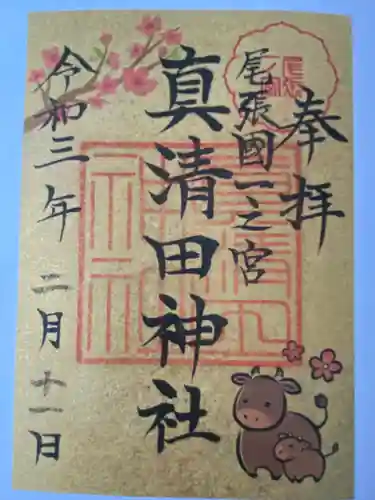 奉拝
尾張國一之宮
真清田神社
令和三年二月十一日